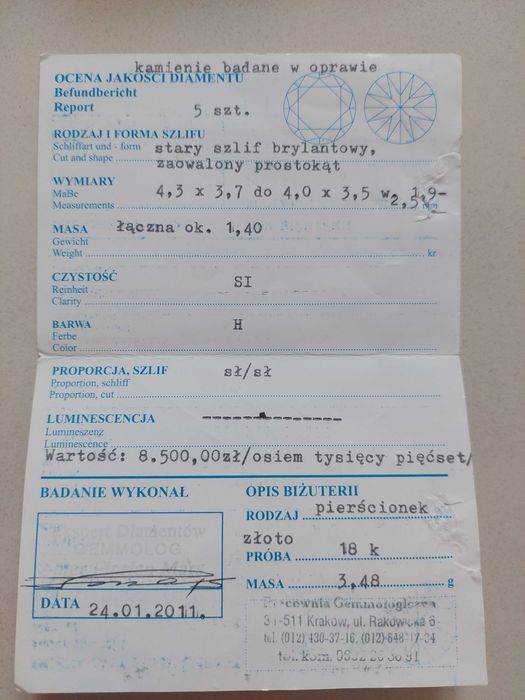 kamienie badane w oprawie
OCENA JAKOŚCI DIAMENTU
Befundbericht
Report 5 szt.
RODZAJ I FORMA SZLIFU
Schliffart und - form stary szlif brylantowy,
Cut and shape zaowalony prostokąt
WYMIARY
Maße 4,3 x 3,7 do 4,0 x 3,5 w 1,9-
Measurements 2,5 mm
MASA łączna ok. 1,40
Gewicht
Weight kr
CZYSTOŚĆ
Reinheit SI
Clarity
BARWA H
Ferbe
Color
PROPORCJA, SZLIF sł/sł
Proportion, schliff
Proportion, cut
LUMINESCENCJA
Lumineszenz
Luminescence
Wartość: 8.500,00zł/osiem tysięcy pięćset/
BADANIE WYKONAŁ
Diamentów
GEMMOLOG
DATA 24.01.2011.
OPIS BIŻUTERII
RODZAJ pierścionek
złoto
PRÓBA 18 k
MASA 3,48 g
Pracownia Gemmologiczna
31-511 Kraków, ul. Rakowicka 6
tel. (012) 430-37-16, (012) 648-17-34
tel. kom.